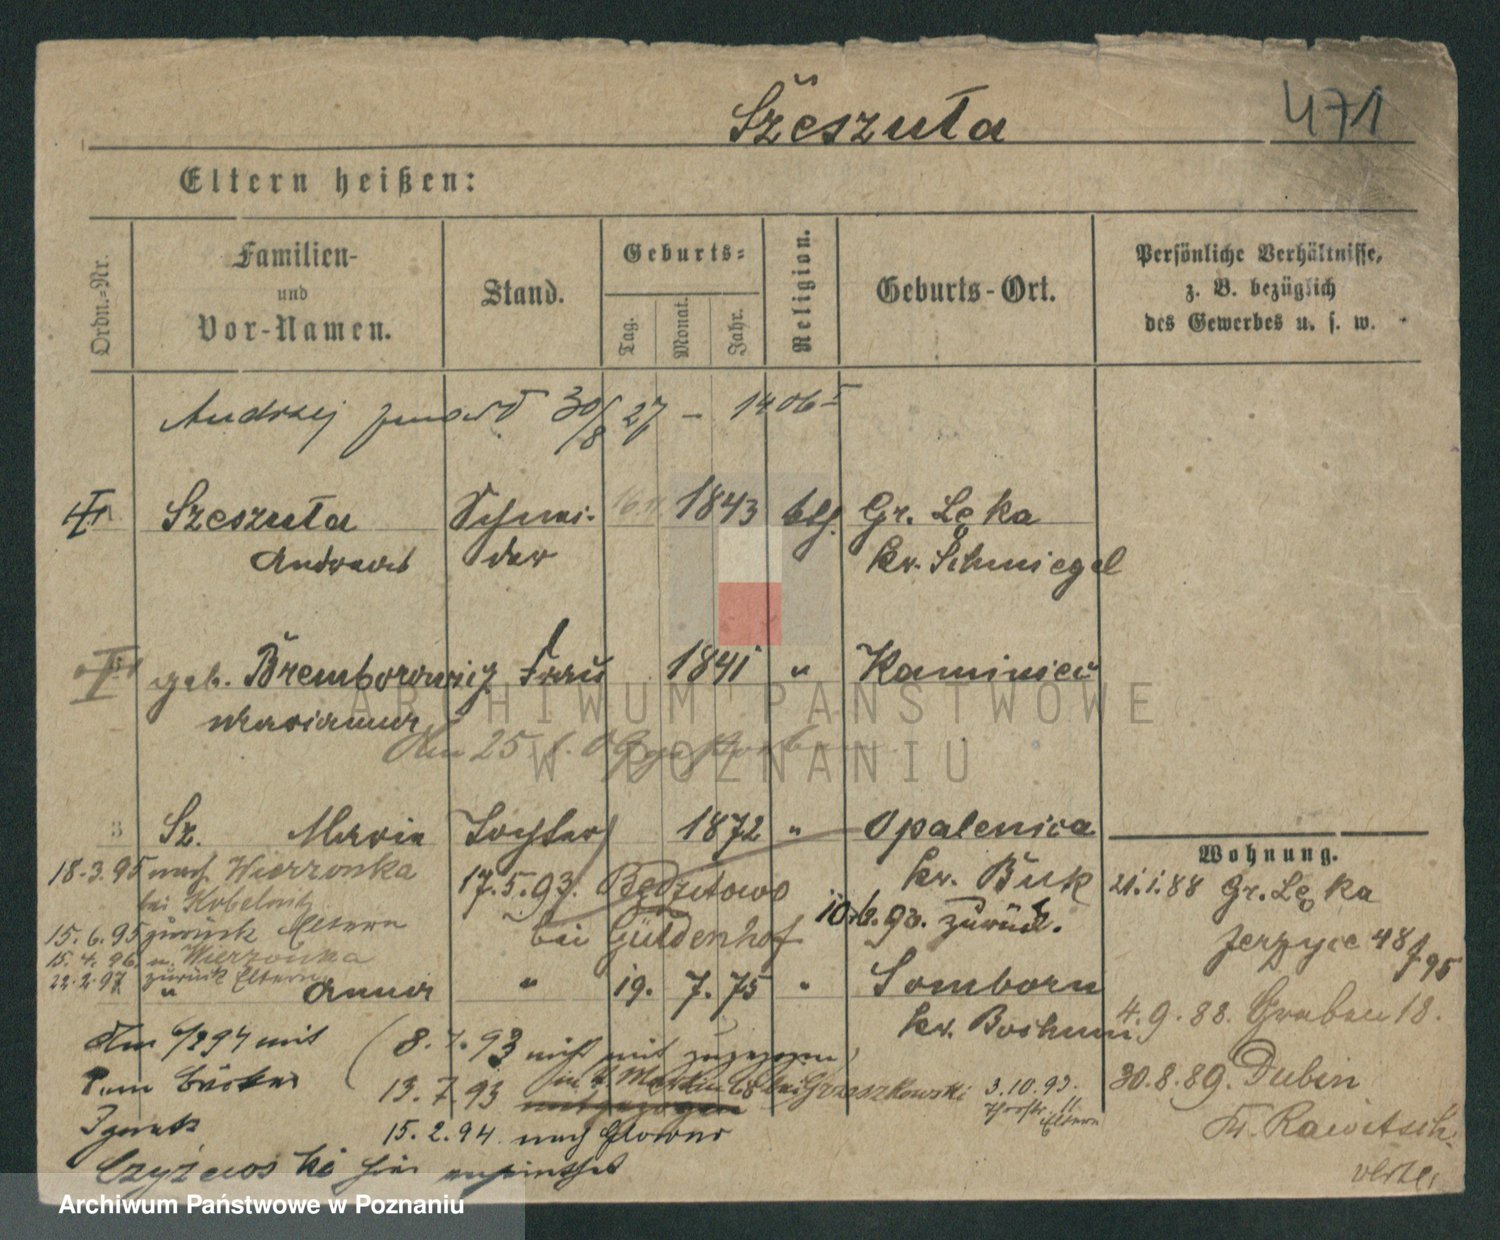 Szeszuła
471
Eltern heißen:
Ordn.-Nr.
Familien-
und
Vor-Namen.
Stand.
Geburts-
Tag.
Monat.
Jahr.
Religion.
Geburts-Ort.
Persönliche Verhältnisse,
z. B. bezüglich
des Gewerbes u. s. w.
Andrzej zmarł 30/8 27 – 1406
Szeszuła Schnei- 1843 kth. Gr. Lęka
Andreas der kr. Schmiegel
geb. Bremborowicz Frau 1841 " Kaminiec
Marianna
den 25. 09 gestorben
ARCHIWUM PAŃSTWOWE
W POZNANIU
3 Sz. Maria Tochter 1872 " Opalenica
kr. Buk
18.3.95 nach Wierzonka
bei Kobelnitz
17.5.93. Będzitowo
bei Güldenhof
10.6.93. zurück.
15.6.95 zurück Eltern
15.4.96 n. Wierzonka
22.2.97 zurück Eltern
" Anna " 19. 7. 75 " Somborn
kr. Bochum
Wohnung.
21.1.88 Gr. Lęka
Jerzyce 48
95
4.9.88. Graben 18.
30.8.89. Dubin
Kr. Rawitsch
mit
(8.7.93 nicht mit zugezogen)
dem Bäcker
13.7.93 St. Martin bei Grzeszkowski 3.10.93.
Eltern
Ignatz
15.2.94 nach
Czyżewski hier
Archiwum Państwowe w Poznaniu